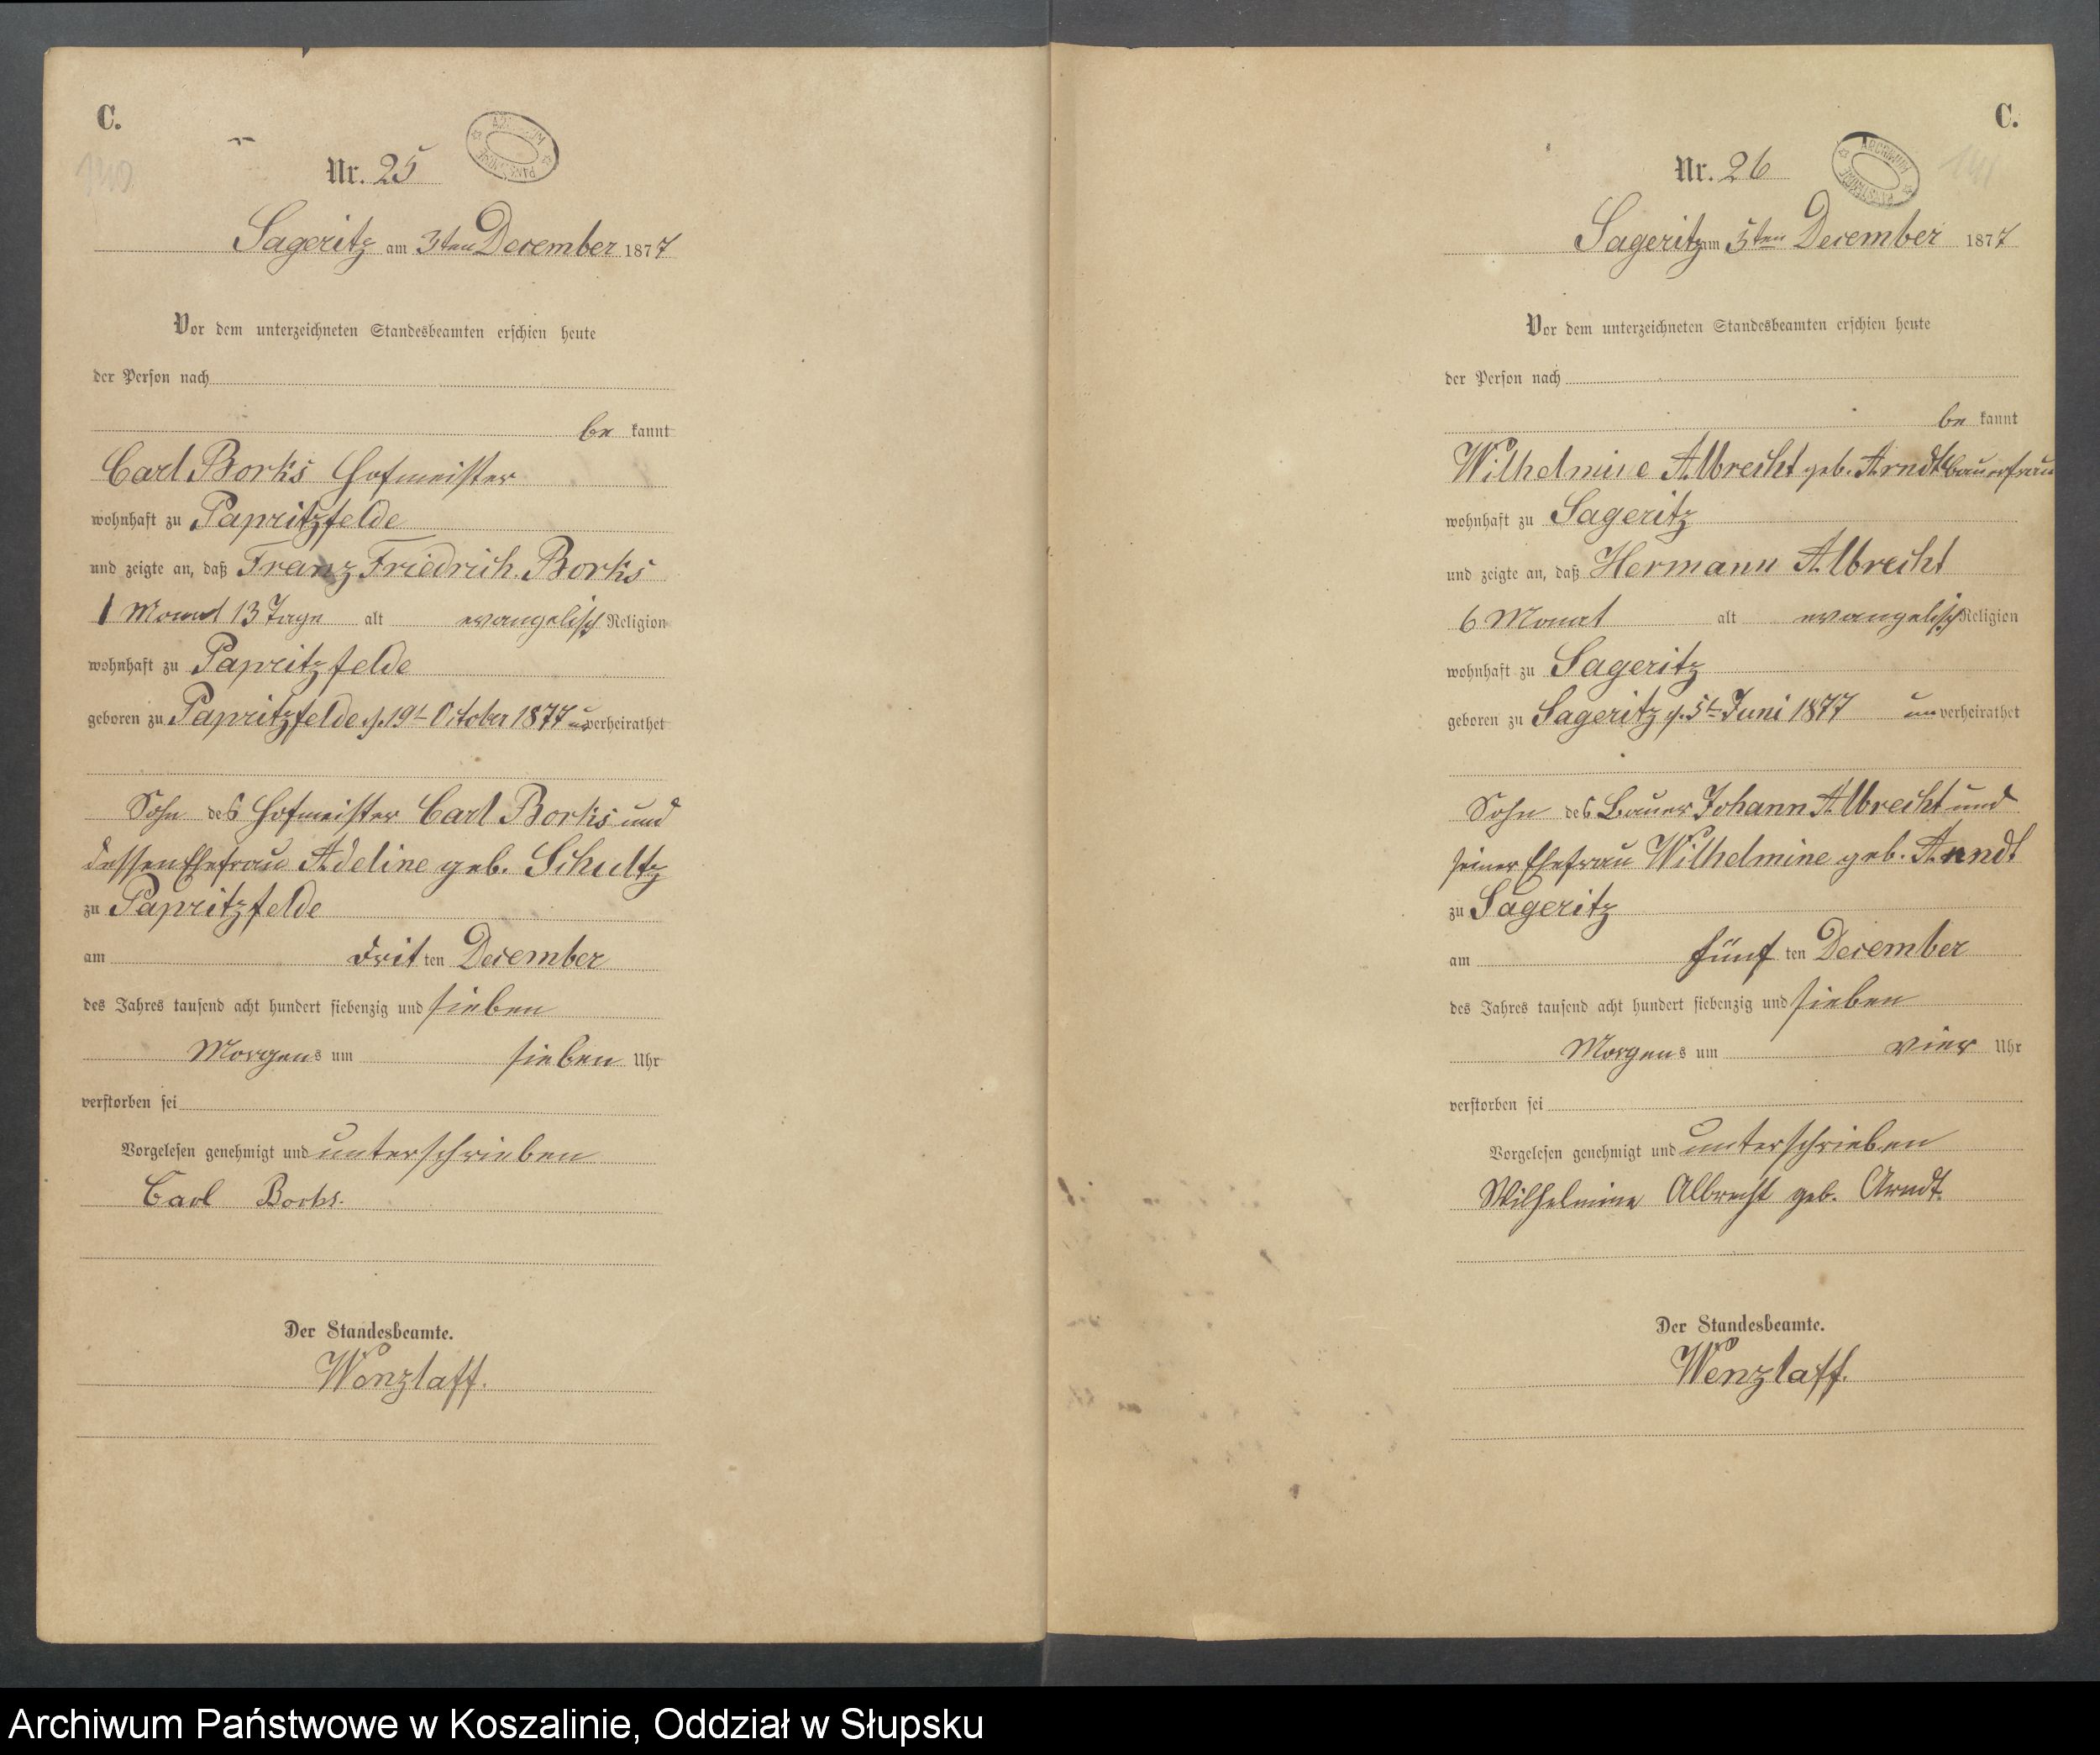 C.
140
Nr. 25
ARCHIWUM PAŃSTWOWE
Sageritz am 3ten December 1877
Vor dem unterzeichneten Standesbeamten erschien heute
der Person nach
be kannt
Carl Borks Hofmeister
wohnhaft zu Papritzfelde
und zeigte an, daß Franz Friedrich Borks
1 Monat 13 Tage alt evangelisch Religion
wohnhaft zu Papritzfelde
geboren zu Papritzfelde d. 19t October 1877 unverheirathet
Sohn des Hofmeister Carl Borks und
dessen Ehefrau Adeline geb. Schultz
zu Papritzfelde
am drit ten December
des Jahres tausend acht hundert siebenzig und sieben
Morgens um sieben Uhr
verstorben sei
Vorgelesen genehmigt und unterschrieben
Carl Borks.
Der Standesbeamte.
Wenzlaff.
C.
141
Nr. 26
ARCHIWUM PAŃSTWOWE
Sageritz am 5ten December 1877
Vor dem unterzeichneten Standesbeamten erschien heute
der Person nach
be kannt
Wilhelmine Albrecht geb. Arndt Bauerfrau
wohnhaft zu Sageritz
und zeigte an, daß Hermann Albrecht
6 Monat alt evangelisch Religion
wohnhaft zu Sageritz
geboren zu Sageritz d. 5t Juni 1877 unverheirathet
Sohn des Bauer Johann Albrecht und
seiner Ehefrau Wilhelmine geb. Arndt
zu Sageritz
am fünf ten December
des Jahres tausend acht hundert siebenzig und sieben
Morgens um vier Uhr
verstorben sei
Vorgelesen genehmigt und unterschrieben
Wilhelmine Albrecht geb. Arndt.
Der Standesbeamte.
Wenzlaff.
Archiwum Państwowe w Koszalinie, Oddział w Słupsku